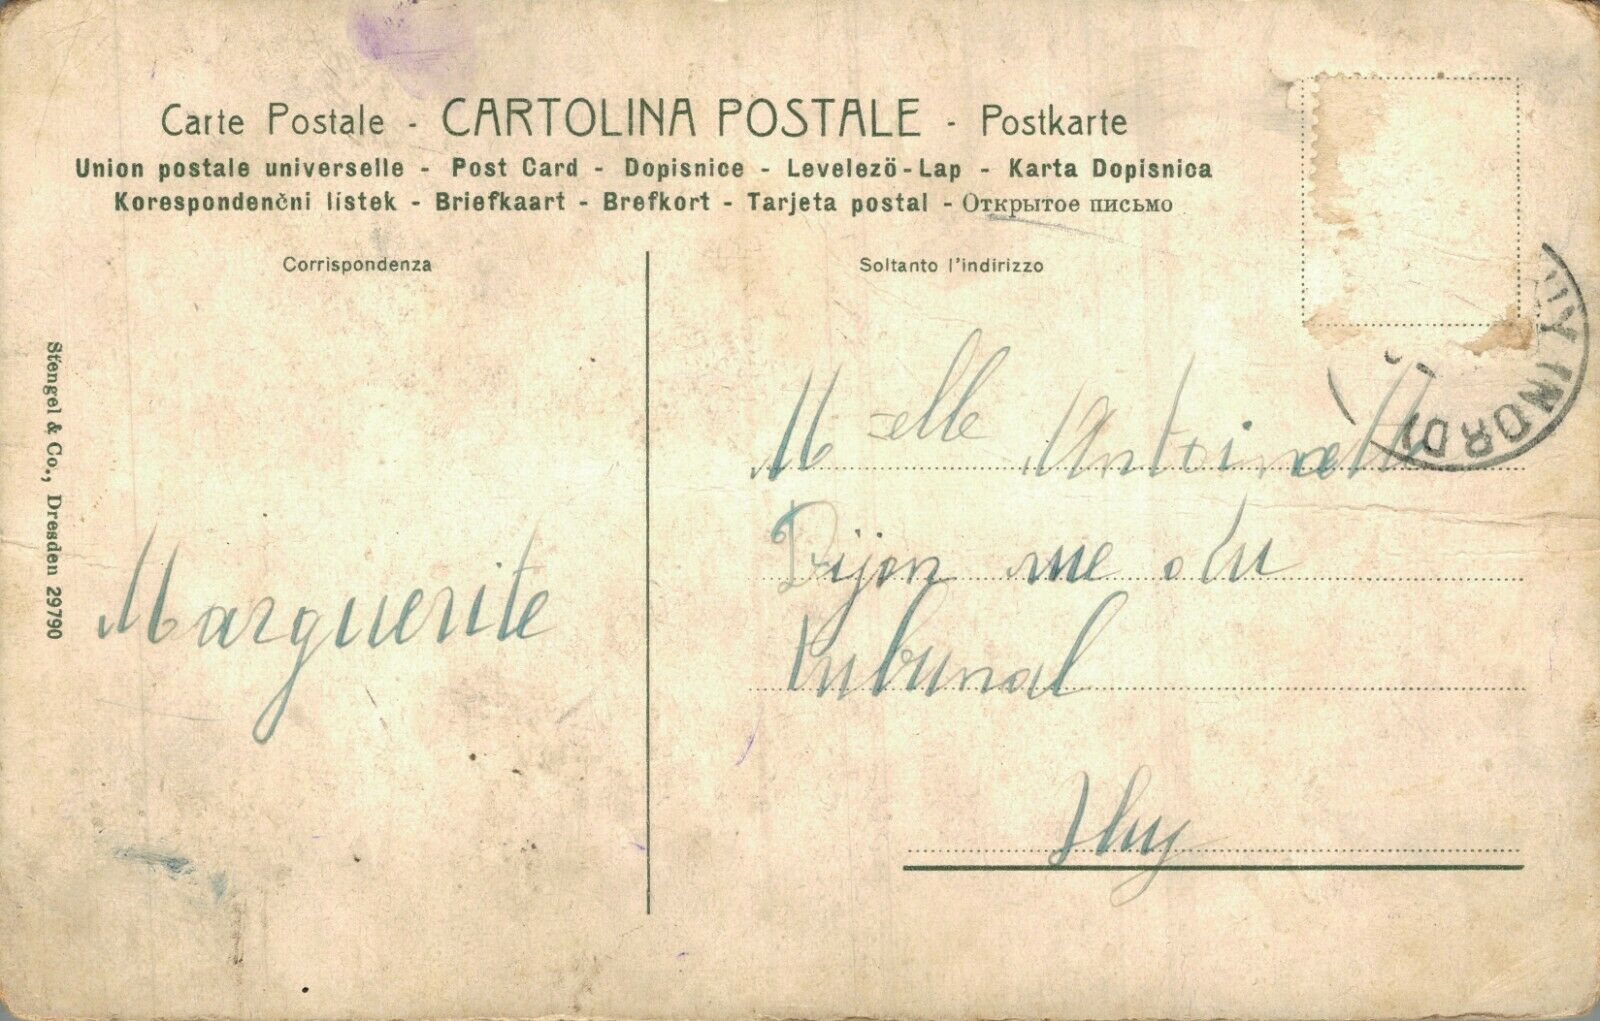 Carte Postale - CARTOLINA POSTALE - Postkarte
Union postale universelle - Post Card - Dopisnice - Levelezö-Lap - Karta Dopisnica
Korespondenčni listek - Briefkaart - Brefkort - Tarjeta postal - Открытое письмо
Corrispondenza
Soltanto l'indirizzo
Stengel & Co., Dresden 29790
Marguerite
Melle Antoinette
Dijon rue du
tribunal
Huy
(NORD)